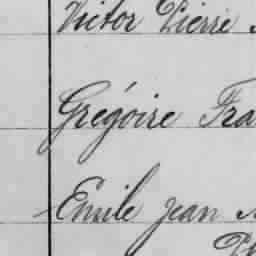 Victor Pierre
Grégoire Fra
Emile Jean